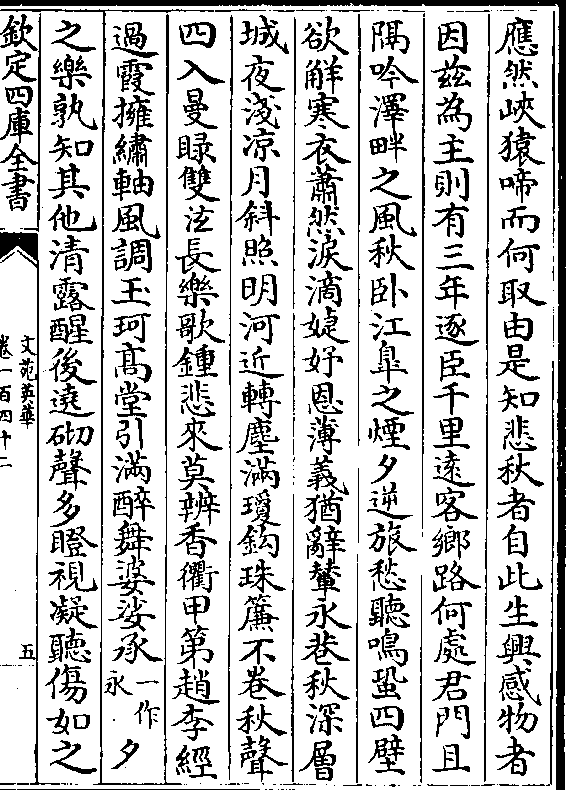 應然峽猿啼而何取由是知悲秋者自此生興感物者
因茲為主則有三年逐臣千里逺客鄉路何處君門且
隔吟澤畔之風秋卧江臯之煙夕逆旅愁聽鳴蛩四壁
欲觧寒衣蕭然淚滴婕妤恩薄義猶辭輦永巷秋深層
城夜淺凉月斜照明河近轉塵滿瓊鈎珠簾不卷秋聲
四入曼睩雙泫長樂歌鍾悲來莫辨香衢甲第趙李經
過霞擁繡軸風調玉珂髙堂引滿醉舞婆娑承一作永夕
之樂孰知其他清露醒後遶砌聲多瞪視凝聽傷如之
欽定四庫全書
文苑英華
卷一百四十二
五